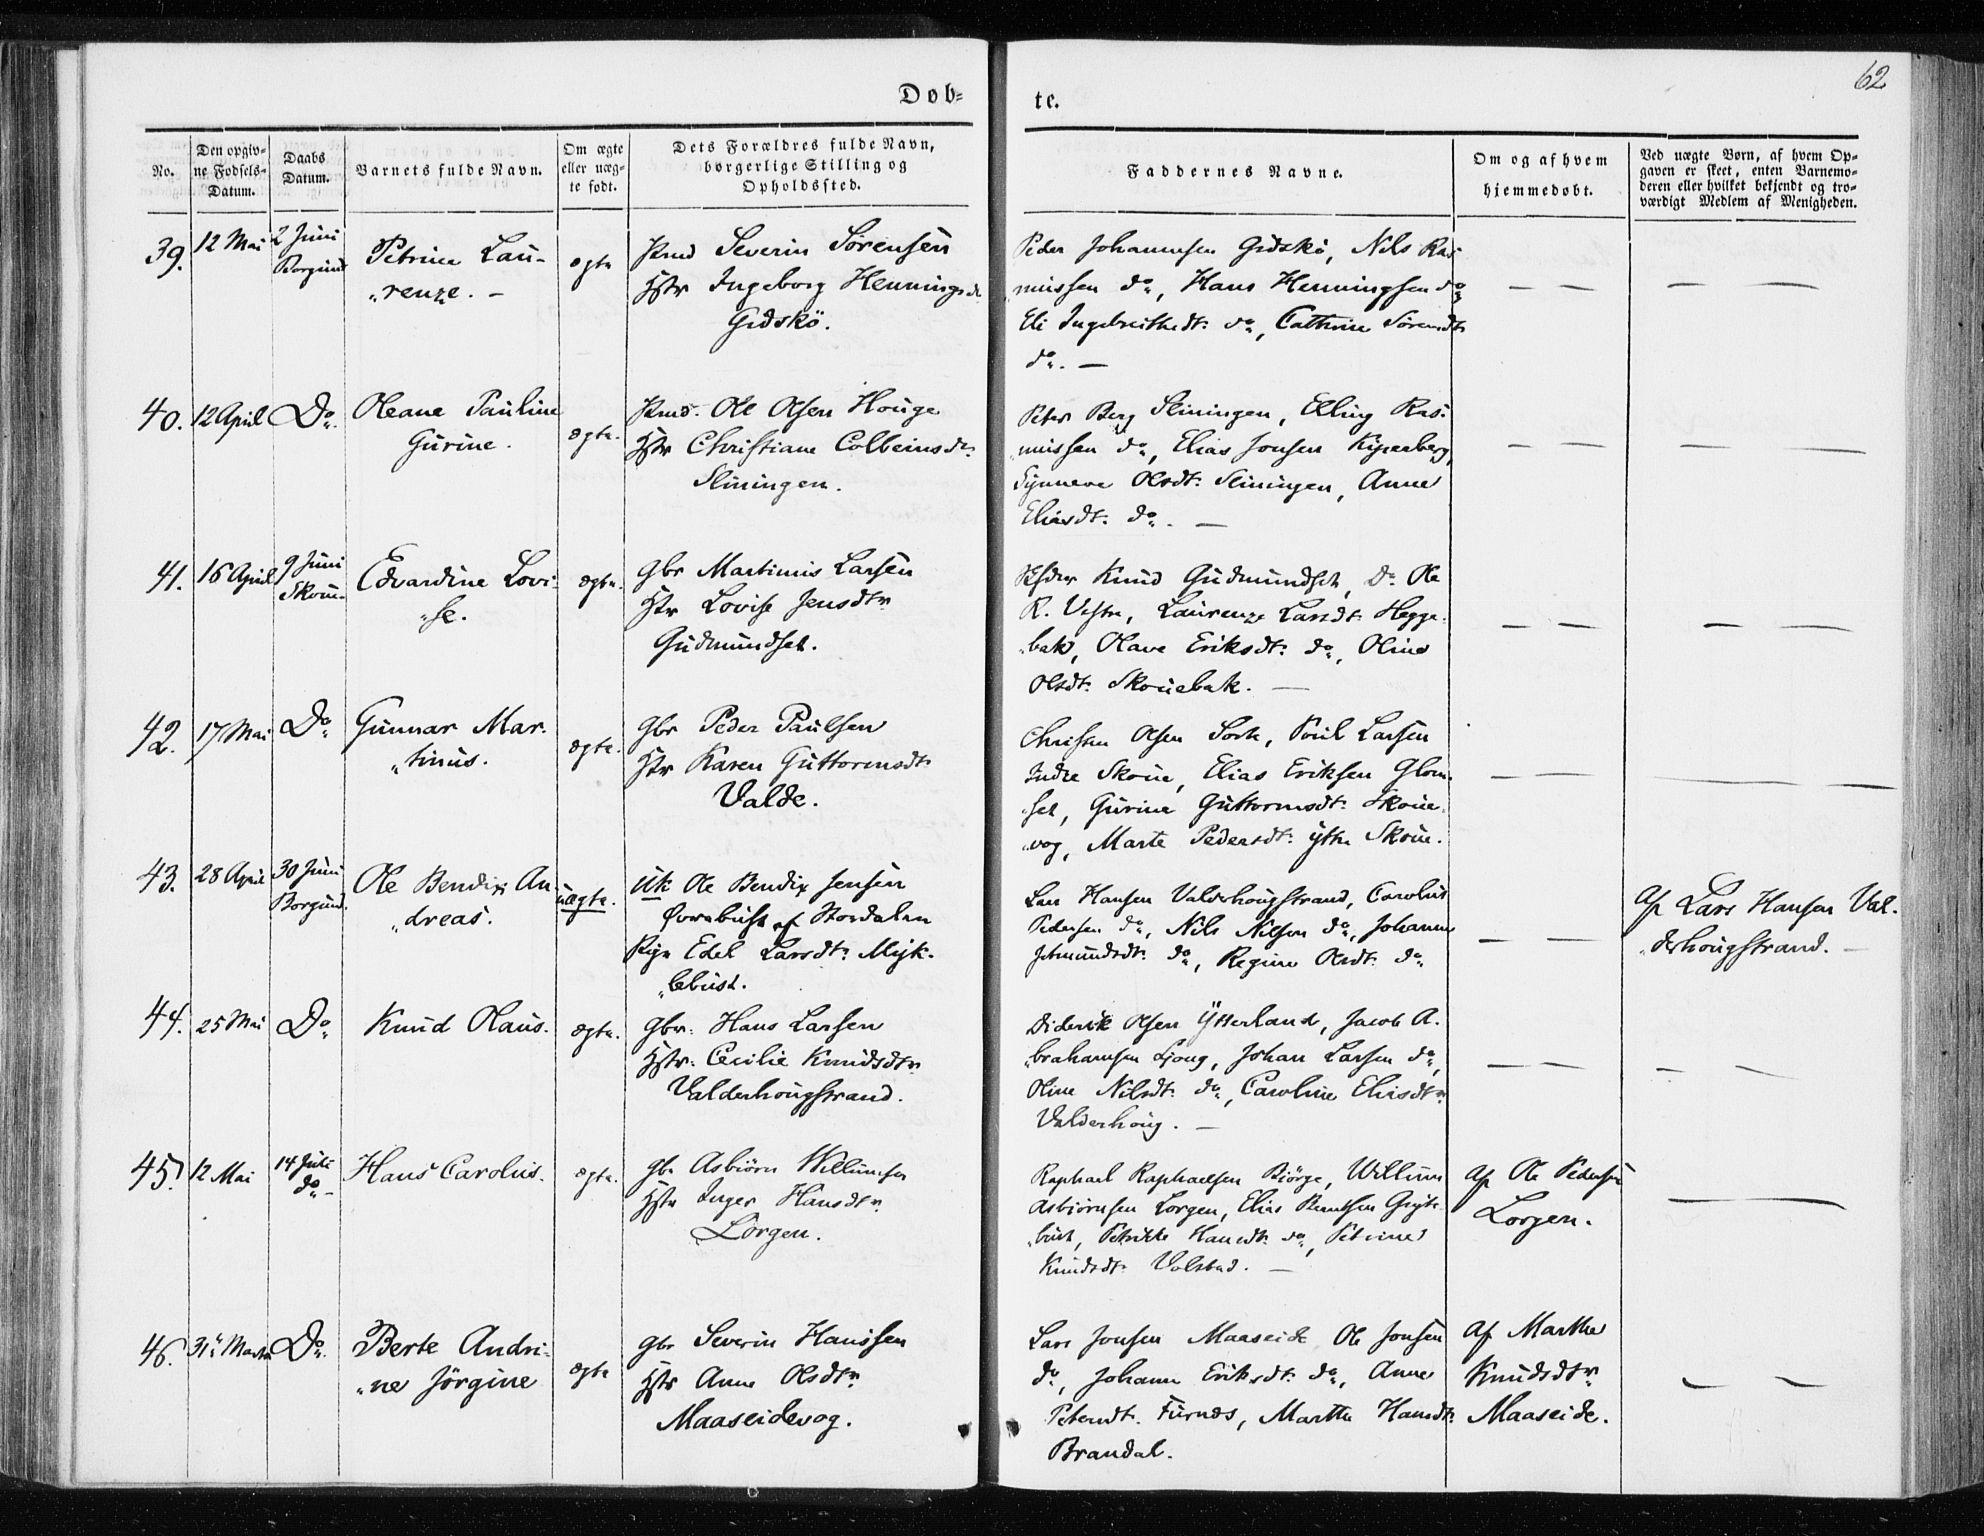 62
Døb=
te.
No.
Den opgiv=
ne Fødsels=
Datum.
Daabs
Datum.
Barnets fulde Navn.
Om ægte
eller uæg=
te født.
Dets Forældres fulde Navn,
borgerlige Stilling og
Opholdssted.
Faddernes Navne.
Om og af hvem
hjemmedøbt.
Ved uægte Børn, af hvem Op=
gaven er skeet, enten Barnemo=
deren eller hvilket bekjendt og tro=
værdigt Medlem af Menigheden.
39.
12 Mai
2 Juni
Borgund
Petrine Lau-
„renze. –
ægte
Severin Sørensen
Hstr Ingeborg Hennings
Gidskö.
Peder Johannesen Gidskö, Nils Ras-
mussen do, Hans Henningsen do
Eli do, Cathrine Sörensdt:
do. –
— —
— —
40.
12 April
Do.
Oleane Pauline
Gurine.
ægte.
Ole Olsen Houge
Hstr Christiane Colbeinsdr.
Sliningen.
Peter Berg Sliningen, Elling Ras-
mussen do, Elias Jonsen
Synneve Olsdt: Sliningen, Anne
Eliasdt. do. —
— —
— —
41.
16 April
9 Juni
Skoue
Edvardine Lovi-
„se.
ægte.
Gbr Martinus Larsen
Hstr Lovise Jensdtr
Gudmundset.
Knud Gudmundset, Do Ole
R. Vestre, Laurenze Larsdt. Hegge-
bak, Olave Eriksdt: do, Oline
Olsdt: Skouebak. —
— —
— —
42.
17 Mai
Do
Gunnar Mar-
„tinus.
ægte.
Gbr Peder Paulsen
Hstr Karen Guttormsdt:
Valde.
Olsen Poul Larsen
Indre Skoue, Elias Eriksen Glom-
set, Gurine Guttormsdt: Skoue-
vog, Marte Pedersdt: Ytre Skoue.
— —
— —
43.
28 April
30 Juni
Borgund.
Ole Bendix An-
„dreas.
uægte.
Uk Ole Bendix Jensen
Øvrebust af Stordalen
Pige Edel Larsdt: Myk-
„lebust.
Lars Hansen Valderhougstrand, Carolus
Pedersen do, Nils Nilsen do, Johanne
do, Regine Olsdt: do
— —
Af Lars Hansen Val-
„derhougstrand. —
44.
25 Mai
Do
Knud Olaus.
ægte.
Gbr: Hans Larsen
Hstr: Cecilie Knudsdtr.
Valderhougstrand.
Diderik Olsen Ytterland, Jacob A-
„brahamsen Ljong, Johan Larsen do,
Oline Nilsdt: do, Caroline Eliasdtr.
Valderhoug. —
— —
— —
45.
12 Mai
14 Juli
do –
Hans Carolus.
ægte.
Gbr Asbiörn Willumsen
Hstr Inger Hansdtr.
Lorgen.
Raphael Raphaelsen Björge, Willum
Asbiörnsen Lorgen, Elias Berntsen
Petrikke Hansdt: do, Petrine
Knudsdt: Volstad. —
Af Ole Pedersen
Lorgen.
—
46.
31te Marts
Do.
Berte Andri-
„ne Jörgine
ægte
Gbr Severin Hanssen
Hstr Anne Olsdtr.
Maaseidevog.
Lars Jonsen Maaseide Ole Jonsen
do, Johanne Eriksdt: do, Anne
Petersdt. Furnæs, Marthe Hansdt:
Brandal.
Af Marthe
Knudsdtr.
Maaseide.
— —